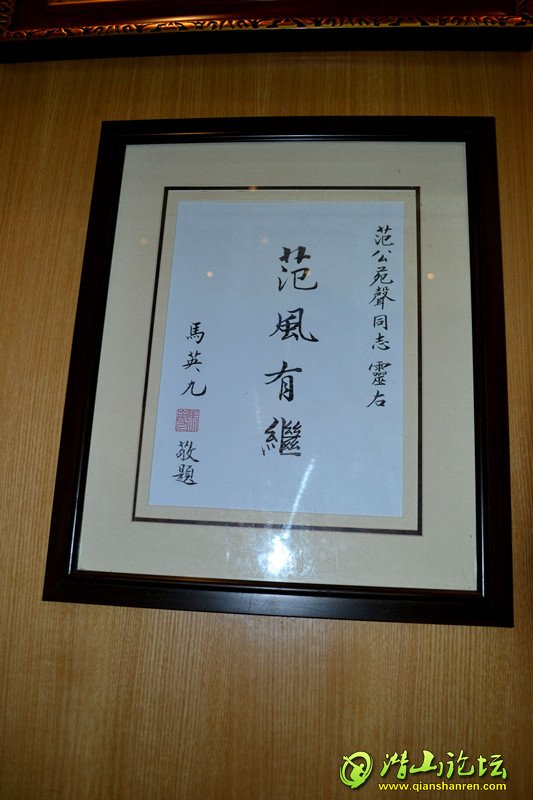 范公苑聲同志 靈右
范風有繼
馬英九 敬題
潜山论坛
www.qianshanren.com